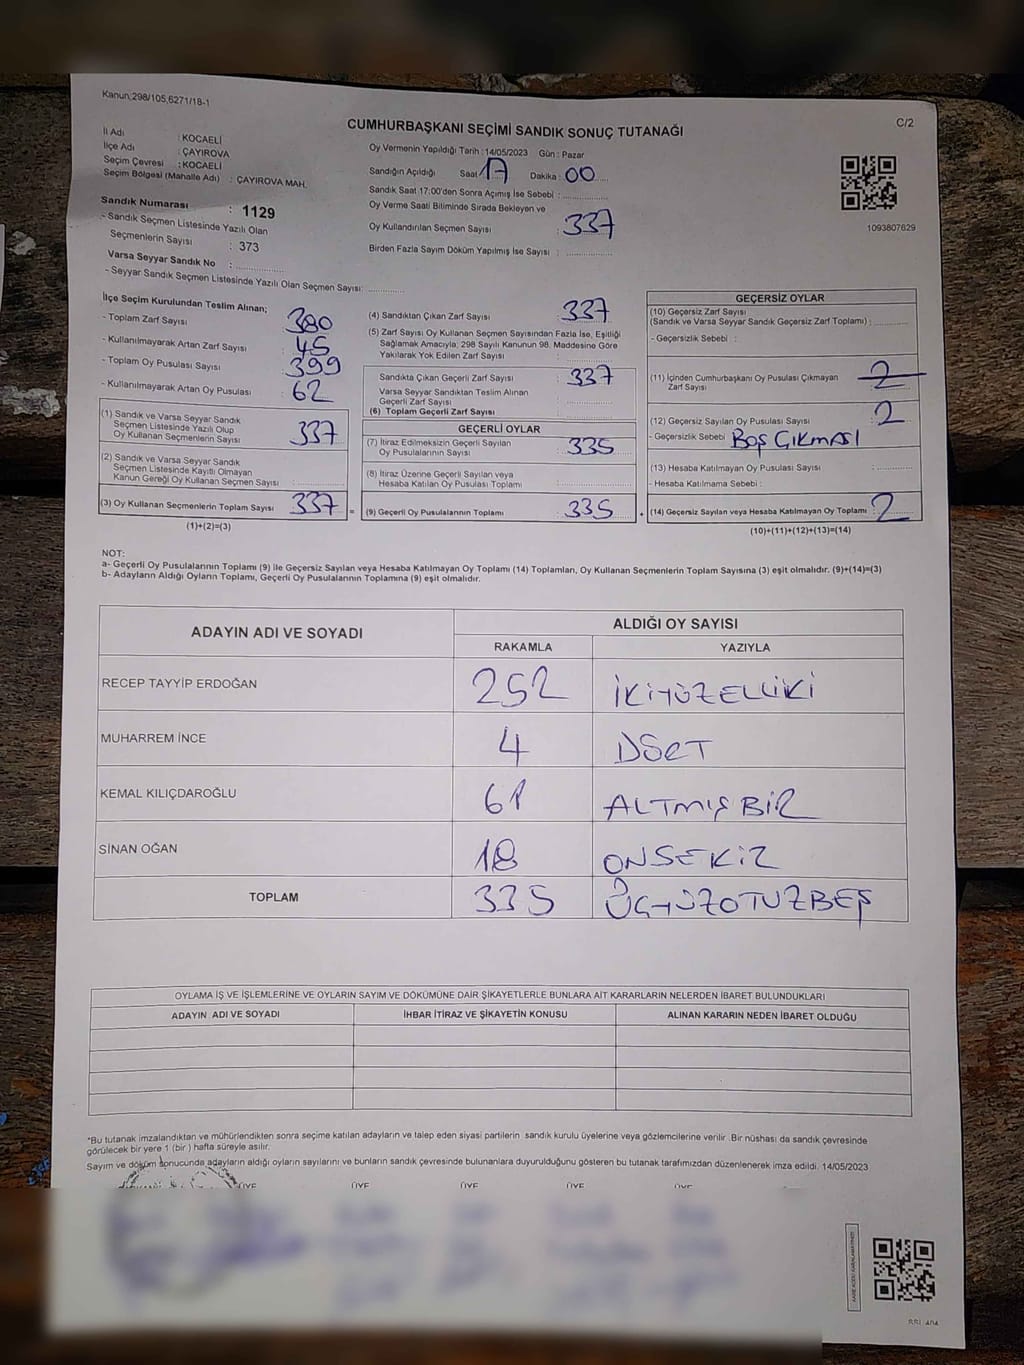 Kanun;298/105,6271/18-1
C/2
CUMHURBAŞKANI SEÇİMİ SANDIK SONUÇ TUTANAĞI
İl Adı : KOCAELİ
İlçe Adı : ÇAYIROVA
Seçim Çevresi : KOCAELİ
Seçim Bölgesi (Mahalle Adı) : ÇAYIROVA MAH.
Sandık Numarası : 1129
- Sandık Seçmen Listesinde Yazılı Olan
Seçmenlerin Sayısı : 373
Varsa Seyyar Sandık No : ..............
- Seyyar Sandık Seçmen Listesinde Yazılı Olan Seçmen Sayısı: ............
Oy Vermenin Yapıldığı Tarih : 14/05/2023 Gün : Pazar
Sandığın Açıldığı Saat 17 Dakika : 00
Sandık Saat 17:00'den Sonra Açımış İse Sebebi : ..............
Oy Verme Saati Bitiminde Sırada Bekleyen ve
Oy Kullandırılan Seçmen Sayısı : 337
Birden Fazla Sayım Döküm Yapılmış İse Sayısı : ..............
1093807629
İlçe Seçim Kurulundan Teslim Alınan;
- Toplam Zarf Sayısı : 380
- Kullanılmayarak Artan Zarf Sayısı : 45
- Toplam Oy Pusulası Sayısı : 399
- Kullanılmayarak Artan Oy Pusulası : 62
(1) Sandık ve Varsa Seyyar Sandık
Seçmen Listesinde Yazılı Olup
Oy Kullanan Seçmenlerin Sayısı : 337
(2) Sandık ve Varsa Seyyar Sandık
Seçmen Listesinde Kayıtlı Olmayan
Kanun Gereği Oy Kullanan Seçmen Sayısı : ..............
(3) Oy Kullanan Seçmenlerin Toplam Sayısı : 337 =
(1)+(2)=(3)
(4) Sandıktan Çıkan Zarf Sayısı : 337
(5) Zarf Sayısı Oy Kullanan Seçmen Sayısından Fazla İse, Eşitliği
Sağlamak Amacıyla; 298 Sayılı Kanunun 98. Maddesine Göre
Yakılarak Yok Edilen Zarf Sayısı : ..............
Sandıkta Çıkan Geçerli Zarf Sayısı : 337
Varsa Seyyar Sandıktan Teslim Alınan
Geçerli Zarf Sayısı : ..............
(6) Toplam Geçerli Zarf Sayısı : ..............
GEÇERLİ OYLAR
(7) İtiraz Edilmeksizin Geçerli Sayılan
Oy Pusulalarının Sayısı : 335
(8) İtiraz Üzerine Geçerli Sayılan veya
Hesaba Katılan Oy Pusulası Toplamı : ..............
(9) Geçerli Oy Pusulalarının Toplamı : 335 +
GEÇERSİZ OYLAR
(10) Geçersiz Zarf Sayısı
(Sandık ve Varsa Seyyar Sandık Geçersiz Zarf Toplamı) : ..........
- Geçersizlik Sebebi :
(11) İçinden Cumhurbaşkanı Oy Pusulası Çıkmayan 2
Zarf Sayısı
(12) Geçersiz Sayılan Oy Pusulası Sayısı : 2
- Geçersizlik Sebebi Boş Çıkması
(13) Hesaba Katılmayan Oy Pusulası Sayısı : ..........
- Hesaba Katılmama Sebebi :
(14) Geçersiz Sayılan veya Hesaba Katılmayan Oy Toplamı : 2
(10)+(11)+(12)+(13)=(14)
NOT:
a- Geçerli Oy Pusulalarının Toplamı (9) ile Geçersiz Sayılan veya Hesaba Katılmayan Oy Toplamı (14) Toplamları, Oy Kullanan Seçmenlerin Toplam Sayısına (3) eşit olmalıdır. (9)+(14)=(3)
b- Adayların Aldığı Oyların Toplamı, Geçerli Oy Pusulalarının Toplamına (9) eşit olmalıdır.
ADAYIN ADI VE SOYADI
ALDIĞI OY SAYISI
RAKAMLA YAZIYLA
RECEP TAYYİP ERDOĞAN 252 İKİYÜZELLİİKİ
MUHARREM İNCE 4 DÖRT
KEMAL KILIÇDAROĞLU 61 ALTMIŞ BİR
SİNAN OĞAN 18 ONSEKİZ
TOPLAM 335 ÜÇYÜZOTUZBEŞ
OYLAMA İŞ VE İŞLEMLERİNE VE OYLARIN SAYIM VE DÖKÜMÜNE DAİR ŞİKAYETLERLE BUNLARA AİT KARARLARIN NELERDEN İBARET BULUNDUKLARI
ADAYIN ADI VE SOYADI İHBAR İTİRAZ VE ŞİKAYETİN KONUSU ALINAN KARARIN NEDEN İBARET OLDUĞU
*Bu tutanak imzalandıktan ve mühürlendikten sonra seçime katılan adayların ve talep eden siyasi partilerin sandık kurulu üyelerine veya gözlemcilerine verilir .Bir nüshası da sandık çevresinde
görülecek bir yere 1 (bir ) hafta süreyle asılır.
Sayım ve döküm sonucunda adayların aldığı oyların sayılarını ve bunların sandık çevresinde bulunanlara duyurulduğunu gösteren bu tutanak tarafımızdan düzenlenerek imza edildi. 14/05/2023
ÜYE ÜYE ÜYE ÜYE ÜYE